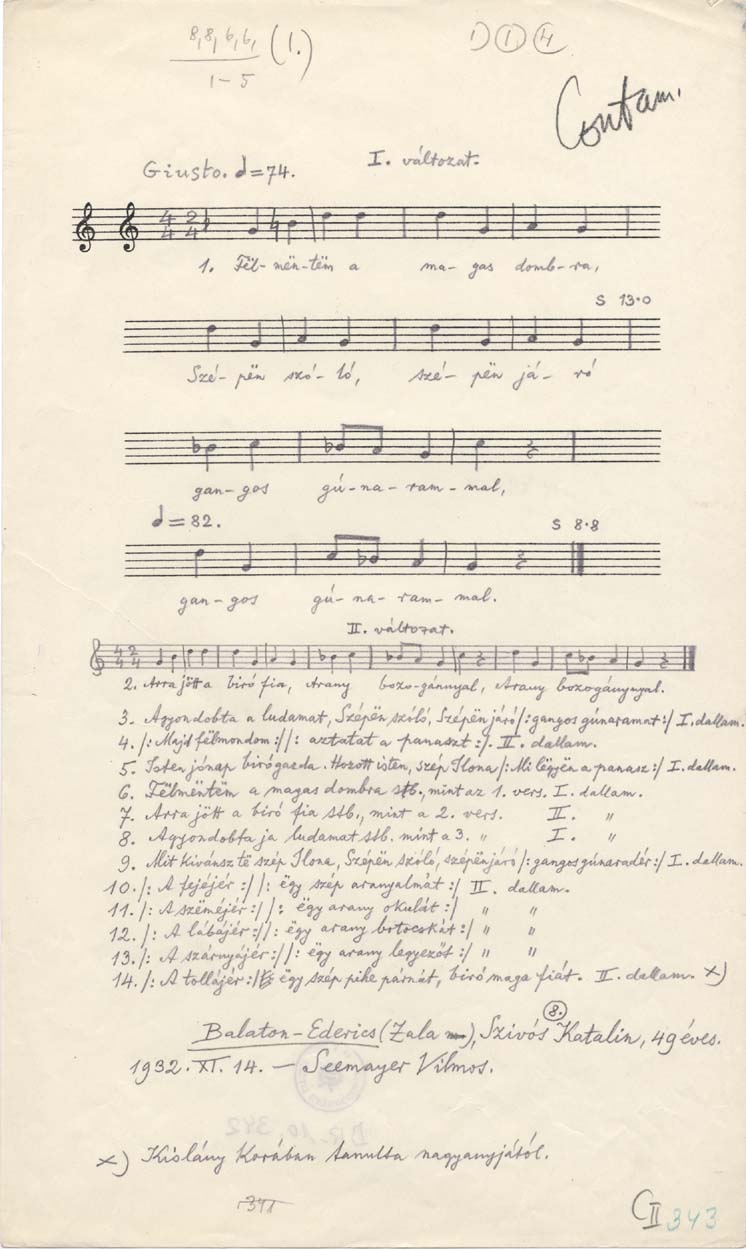 8,8,6,6, (1.)
1-5
1) ① ④
Contam.
Giusto. 𝅗𝅥=74.
I. változat.
4 2
4 4
1. Fël-mën-tëm a ma-gas domb-ra,
S 13·0
Szé-pën szó-ló, szé-pën já-ró
gan-gos gú-na-ram-mal,
𝅗𝅥=82.
S 8·8
gan-gos gú-na-ram-mal.
II. változat.
4 2
4 4
2. Arra jött a biró fia, Arany bozo-gánnyal, Arany bozogánynyal.
3. Agyondobta a ludamat, Szépën szóló, Szépën járó /: gangos gúnaramat :/ I. dallam.
4. /: Majd fëlmondom :/ /: aztatat a panaszt :/. II. dallam.
5. Isten jónap birógazda. Hozott isten, szép Ilona /: Mi légyën a panasz :/ I. dallam.
6. Fëlmëntëm a magas dombra stb., mint az 1. vers. I. dallam.
7. Arra jött a biró fia stb., mint a 2. vers. II. "
8. Agyondobta ja ludamat stb. mint a 3. " I. "
9. Mit kivánsz të szép Ilona, Szépën szóló, szépën járó /: gangos gúnaradér :/ I. dallam.
10. /: A fejéjér :/ /: ëgy szép aranyalmát :/ II. dallam.
11. /: A szëméjér :/ /: ëgy arany okulát :/ " "
12. /: A lábájér :/ /: ëgy arany botocskát :/ " "
13. /: A szárnyájér :/ /: ëgy arany legyezőt :/ " "
14. /: A tollájér :/ ëgy szép pihe párnát, biró maga fiát. II. dallam. x)
8.
Balaton-Ederics (Zala), Szivós Katalin, 49 éves.
1932. XI. 14. — Seemayer Vilmos.
x) Kislány korában tanulta nagyanyjától.
341
C II 343